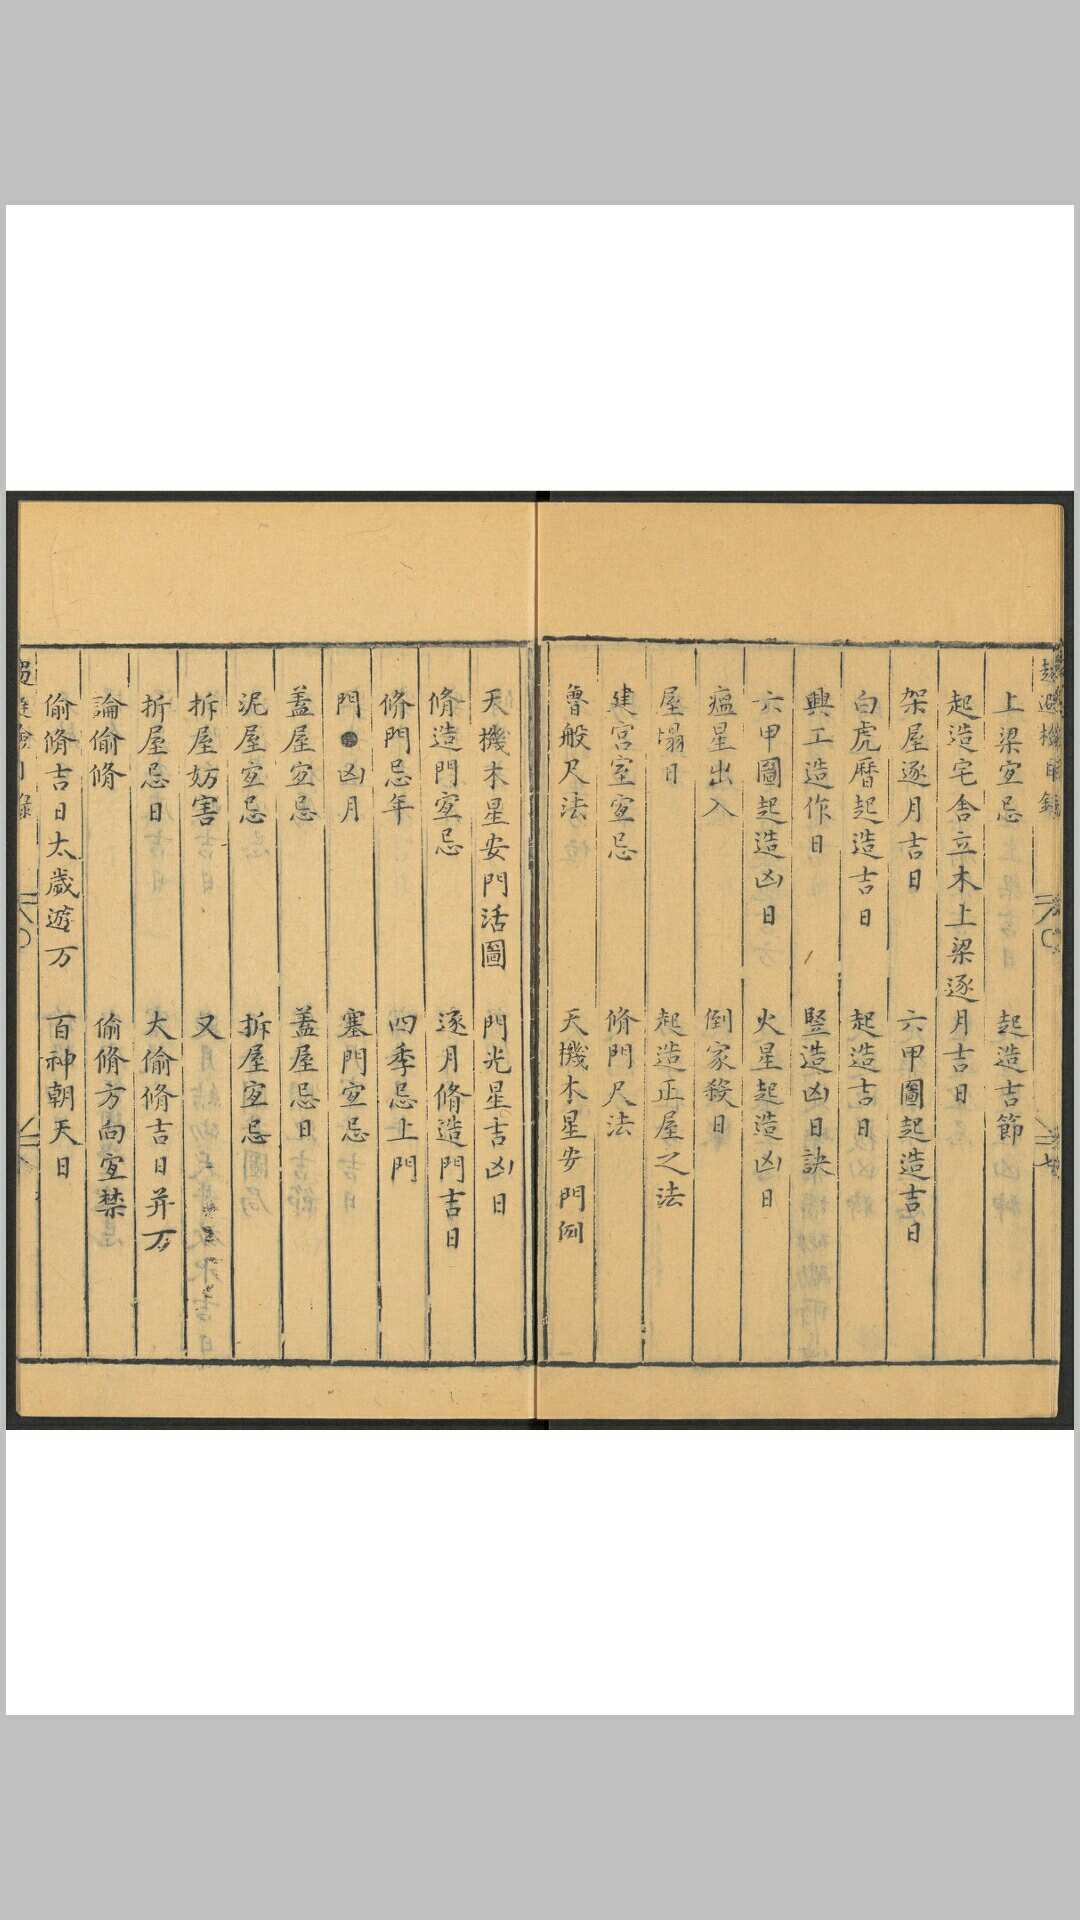 上梁宜忌 起造吉節
起造宅舍立木上梁逐月吉日
架屋逐月吉日 六甲圖起造吉日
白虎曆起造吉日 起造吉日
興工造作日 豎造凶日訣
六甲圖起造凶日 火星起造凶日
瘟星出入 倒家殺日
屋塌日 起造正屋之法
建宮室宜忌 脩門尺法
魯般尺法 天機木星安門例
天機木星安門活圖 門光星吉凶日
脩造門宜忌 逐月脩造門吉日
脩門忌年 四季忌上門
門●凶月 塞門宜忌
蓋屋宜忌 蓋屋忌日
泥屋宜忌 拆屋宜忌
拆屋妨害 又
折屋忌日 大偷脩吉日并万
論偷脩 偷脩方向宜禁
偷脩吉日太歲遊万 百神朝天日